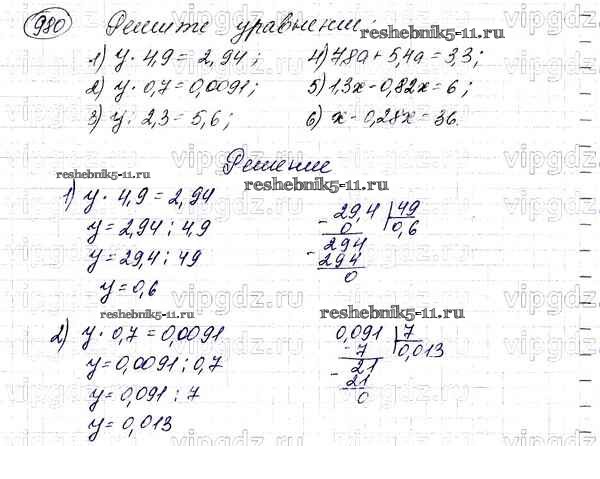 980 Решите уравнения:
1) y · 4,9 = 2,94; 4) 7,8a + 5,4a = 3,3;
2) y · 0,7 = 0,0091; 5) 1,3x - 0,82x = 6;
3) y : 2,3 = 5,6; 6) x - 0,28x = 36.
Решение
1) y · 4,9 = 2,94
y = 2,94 : 4,9
y = 29,4 : 49
y = 0,6
29,4 | 49
- 0 | 0,6
294
- 294
0
2) y · 0,7 = 0,0091
y = 0,0091 : 0,7
y = 0,091 : 7
y = 0,013
0,091 | 7
- 7 | 0,013
21
- 21
0
reshebnik5-11.ru
reshebnik5-11.ru
reshebnik5-11.ru
reshebnik5-11.ru
reshebnik5-11.ru
reshebnik5-11.ru
vipgdz.ru